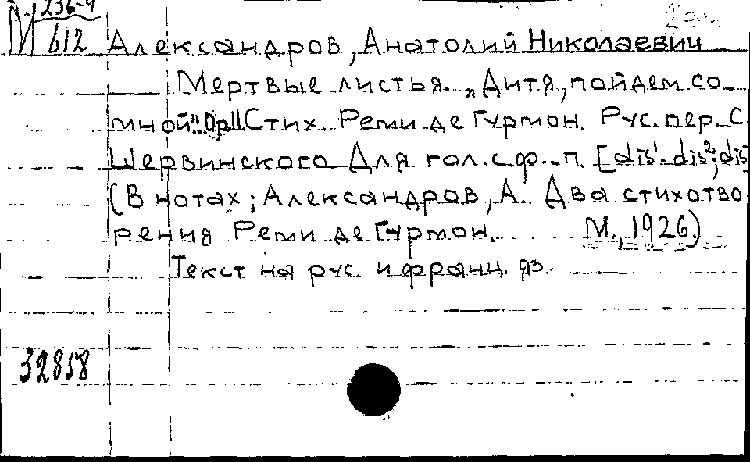 236-4
М 612 Александров, Анатолий Николаевич
Мертвые листья. „Дитя, пойдем со
мной". Op.11. Стих. Реми де Гурмон. Рус. пер. С.
Шервинского. Для гол. с ф.-п. [dis¹-dis²; dis
(В нотах; Александров, А. Два стихотво
рения Реми де Гурмон. М., 1926)
Текст на рус. и франц. яз.
32858